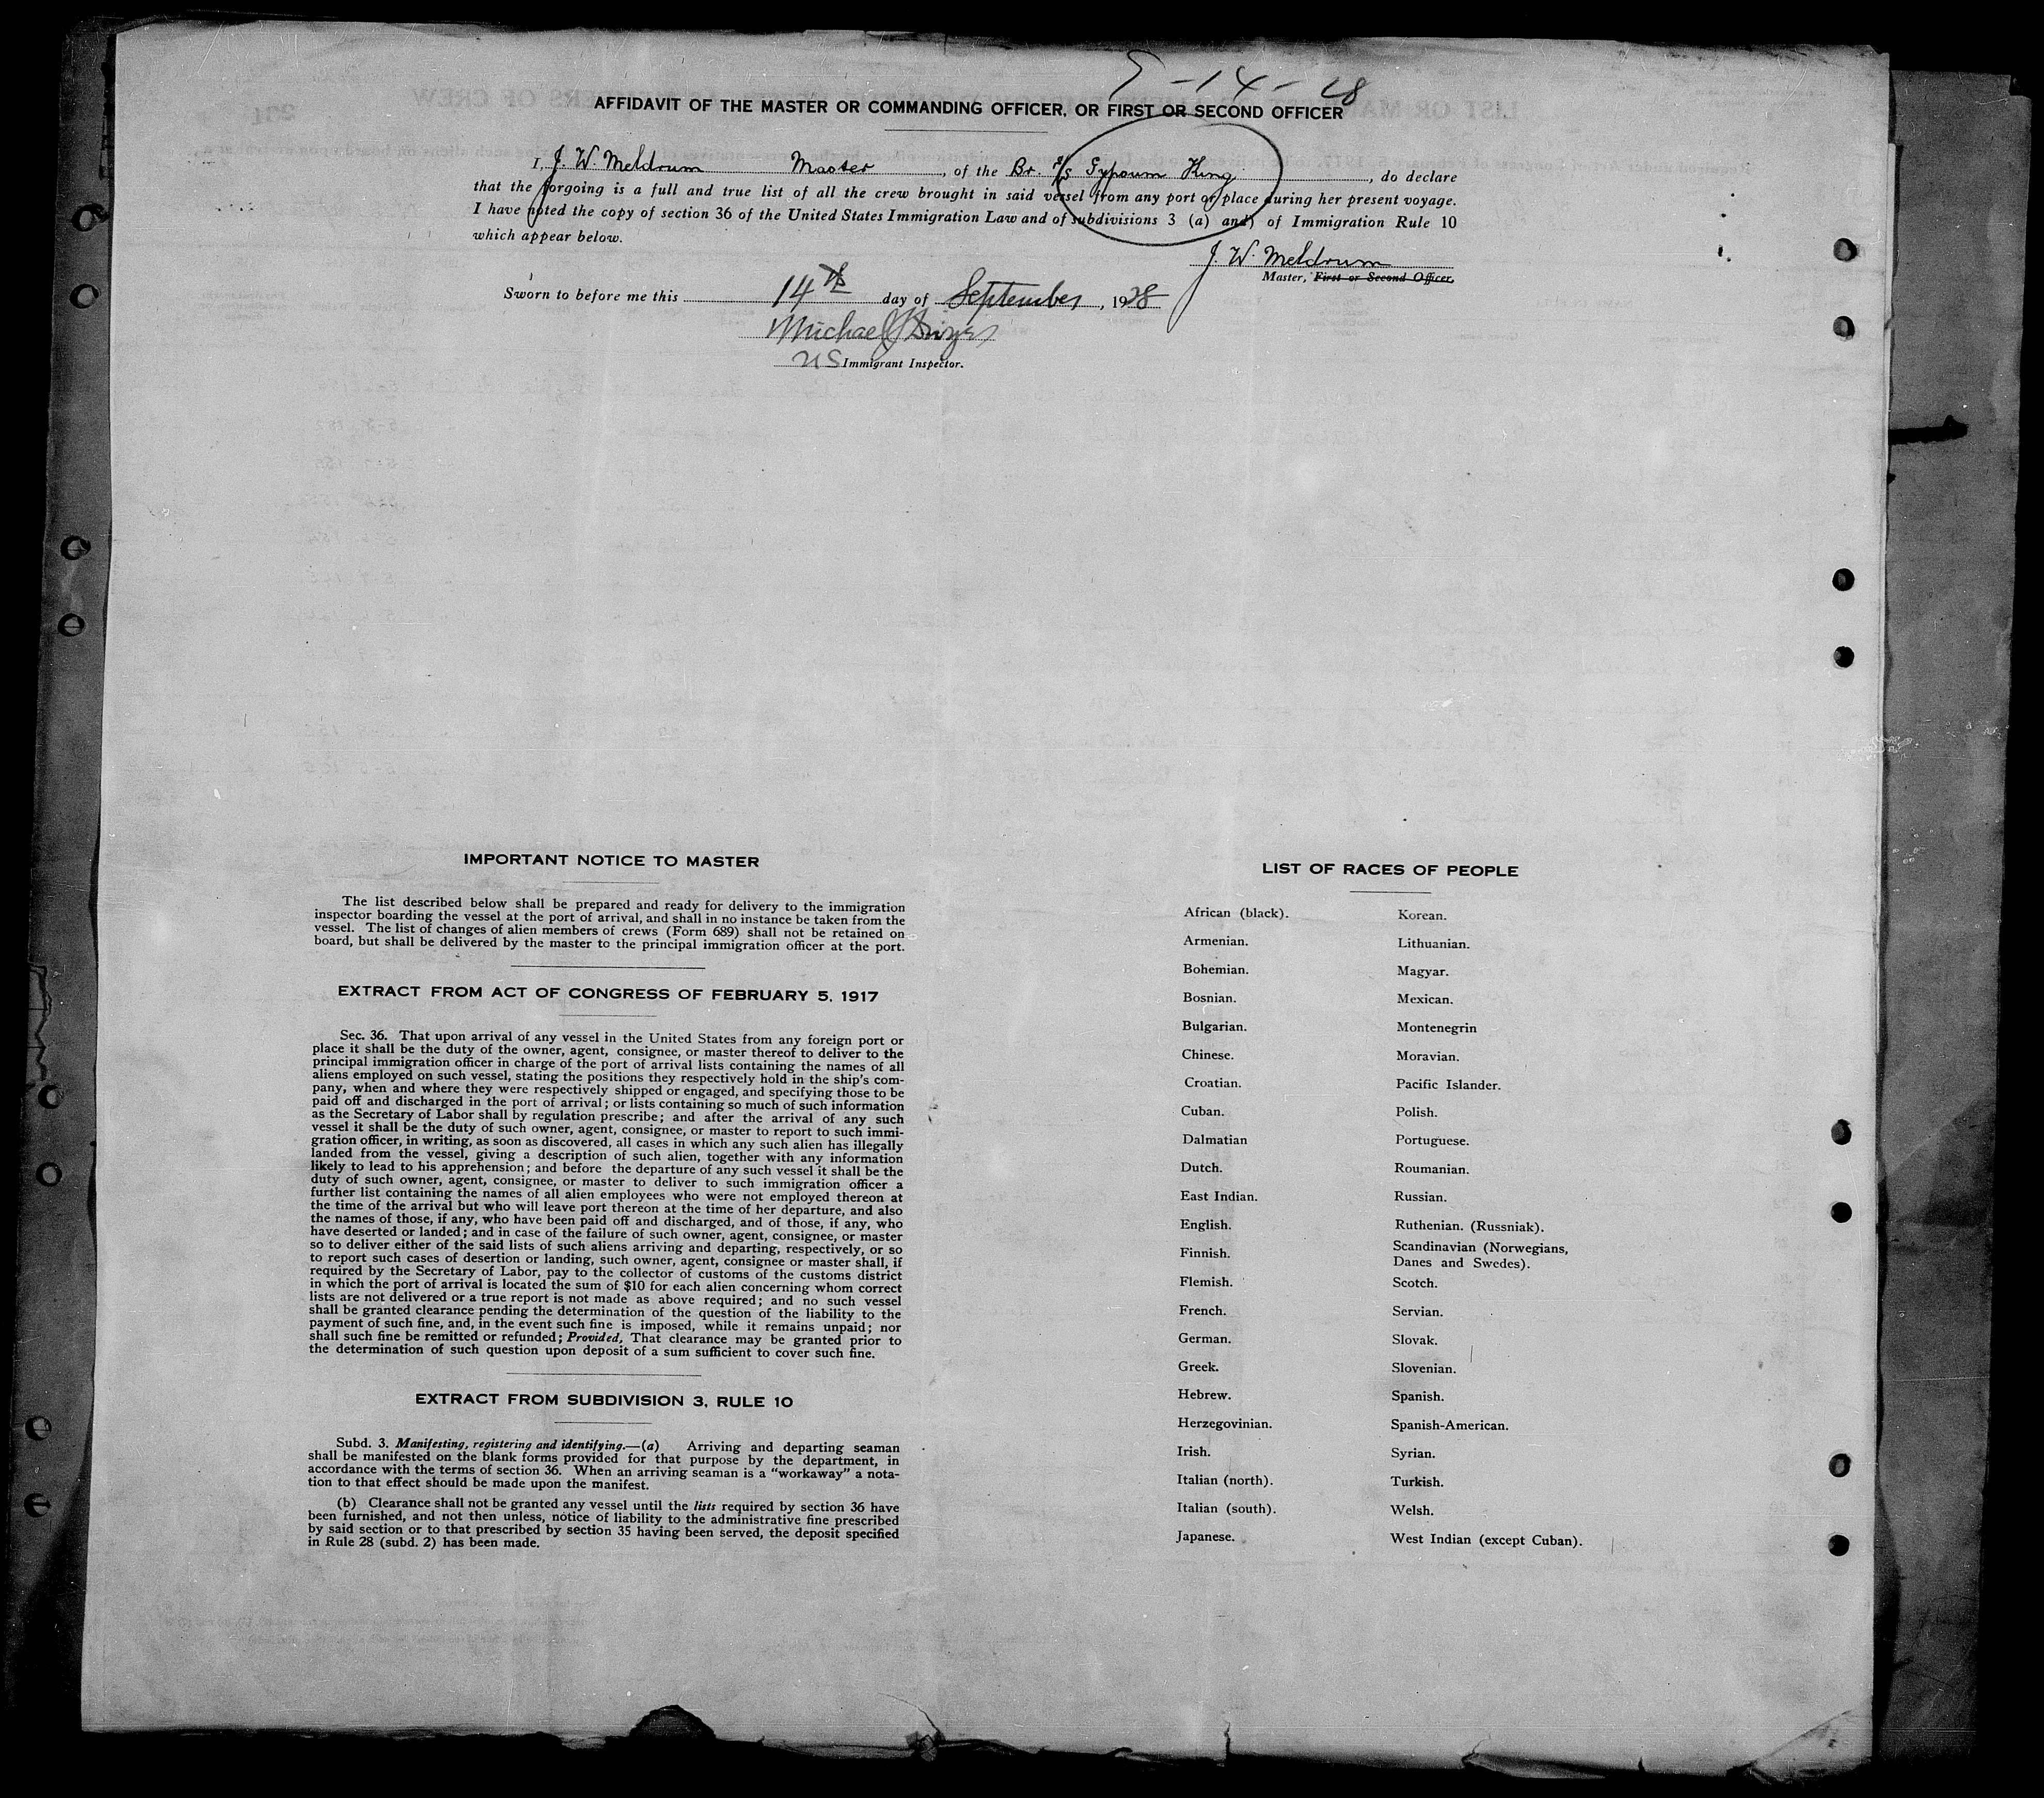 9-14-28
AFFIDAVIT OF THE MASTER OR COMMANDING OFFICER, OR FIRST OR SECOND OFFICER
I, J. W. Meldrum Master, of the Br. S/S Gypsum King, do declare
that the forgoing is a full and true list of all the crew brought in said vessel from any port or place during her present voyage.
I have noted the copy of section 36 of the United States Immigration Law and of subdivisions 3 (a) and) of Immigration Rule 10
which appear below.
J. W. Meldrum
Master, First or Second Officer.
Sworn to before me this 14th day of September, 1928
Michael
US Immigrant Inspector.
IMPORTANT NOTICE TO MASTER
The list described below shall be prepared and ready for delivery to the immigration
inspector boarding the vessel at the port of arrival, and shall in no instance be taken from the
vessel. The list of changes of alien members of crews (Form 689) shall not be retained on
board, but shall be delivered by the master to the principal immigration officer at the port.
EXTRACT FROM ACT OF CONGRESS OF FEBRUARY 5, 1917
Sec. 36. That upon arrival of any vessel in the United States from any foreign port or
place it shall be the duty of the owner, agent, consignee, or master thereof to deliver to the
principal immigration officer in charge of the port of arrival lists containing the names of all
aliens employed on such vessel, stating the positions they respectively hold in the ship's com-
pany, when and where they were respectively shipped or engaged, and specifying those to be
paid off and discharged in the port of arrival; or lists containing so much of such information
as the Secretary of Labor shall by regulation prescribe; and after the arrival of any such
vessel it shall be the duty of such owner, agent, consignee, or master to report to such immi-
gration officer, in writing, as soon as discovered, all cases in which any such alien has illegally
landed from the vessel, giving a description of such alien, together with any information
likely to lead to his apprehension; and before the departure of any such vessel it shall be the
duty of such owner, agent, consignee, or master to deliver to such immigration officer a
further list containing the names of all alien employees who were not employed thereon at
the time of the arrival but who will leave port thereon at the time of her departure, and also
the names of those, if any, who have been paid off and discharged, and of those, if any, who
have deserted or landed; and in case of the failure of such owner, agent, consignee, or master
so to deliver either of the said lists of such aliens arriving and departing, respectively, or so
to report such cases of desertion or landing, such owner, agent, consignee or master shall, if
required by the Secretary of Labor, pay to the collector of customs of the customs district
in which the port of arrival is located the sum of $10 for each alien concerning whom correct
lists are not delivered or a true report is not made as above required; and no such vessel
shall be granted clearance pending the determination of the question of the liability to the
payment of such fine, and, in the event such fine is imposed, while it remains unpaid; nor
shall such fine be remitted or refunded; Provided, That clearance may be granted prior to
the determination of such question upon deposit of a sum sufficient to cover such fine.
EXTRACT FROM SUBDIVISION 3, RULE 10
Subd. 3. Manifesting, registering and identifying.—(a) Arriving and departing seaman
shall be manifested on the blank forms provided for that purpose by the department, in
accordance with the terms of section 36. When an arriving seaman is a "workaway" a nota-
tion to that effect should be made upon the manifest.
(b) Clearance shall not be granted any vessel until the lists required by section 36 have
been furnished, and not then unless, notice of liability to the administrative fine prescribed
by said section or to that prescribed by section 35 having been served, the deposit specified
in Rule 28 (subd. 2) has been made.
LIST OF RACES OF PEOPLE
African (black). Korean.
Armenian. Lithuanian.
Bohemian. Magyar.
Bosnian. Mexican.
Bulgarian. Montenegrin
Chinese. Moravian.
Croatian. Pacific Islander.
Cuban. Polish.
Dalmatian Portuguese.
Dutch. Roumanian.
East Indian. Russian.
English. Ruthenian. (Russniak).
Finnish. Scandinavian (Norwegians,
Danes and Swedes).
Flemish. Scotch.
French. Servian.
German. Slovak.
Greek. Slovenian.
Hebrew. Spanish.
Herzegovinian. Spanish-American.
Irish. Syrian.
Italian (north). Turkish.
Italian (south). Welsh.
Japanese. West Indian (except Cuban).